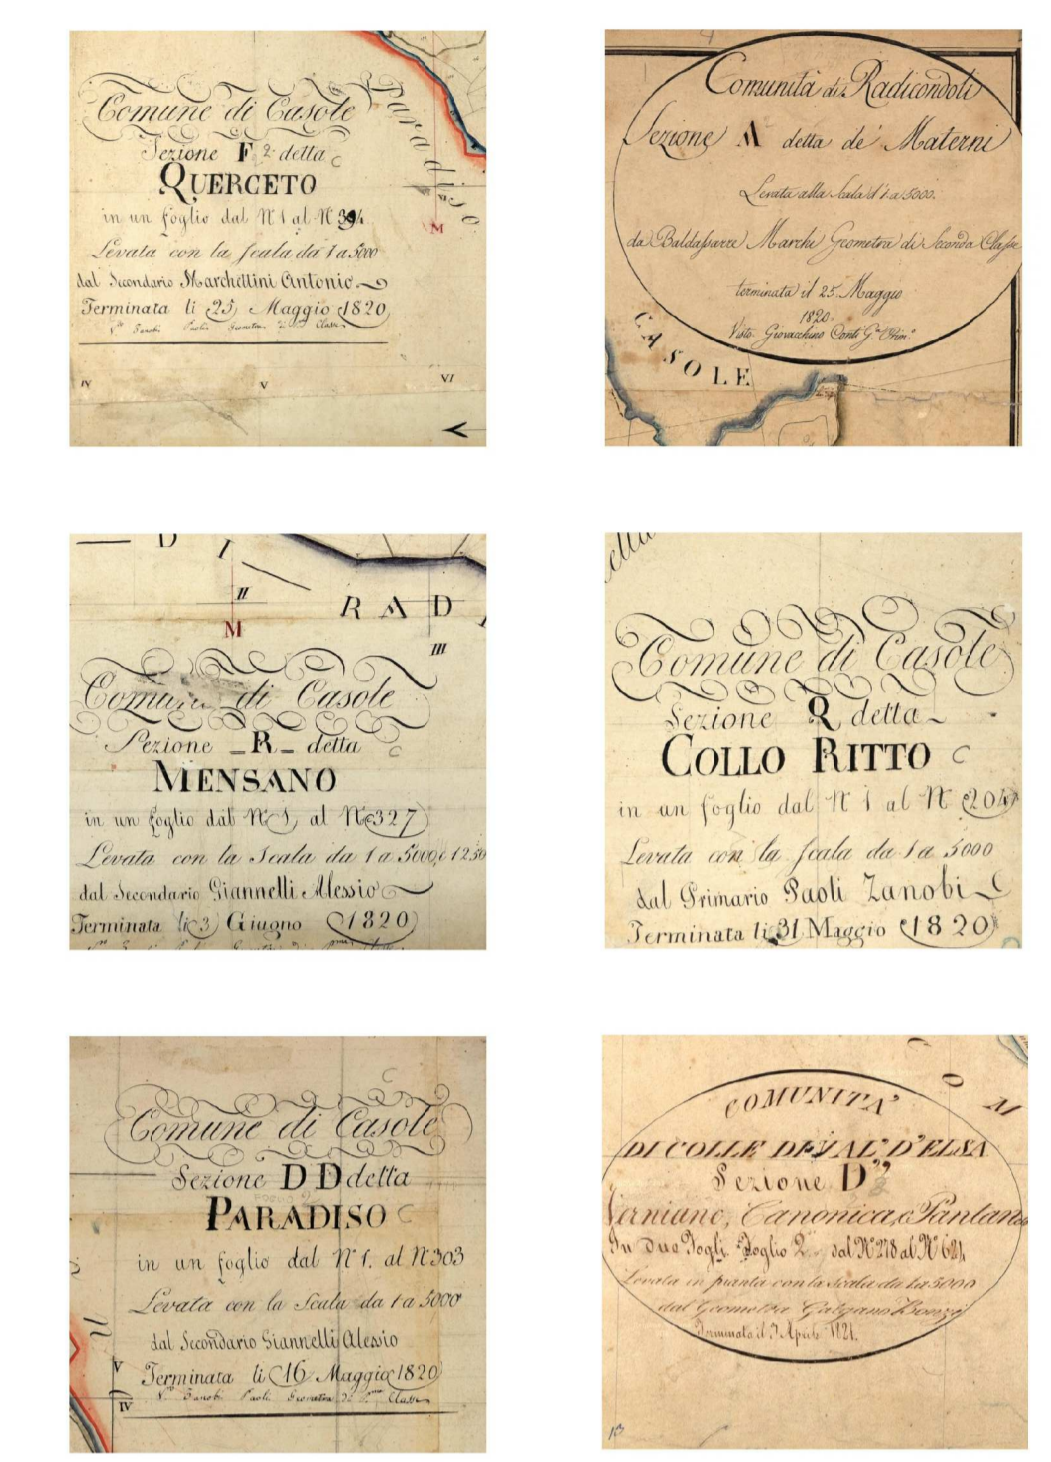 Comune di Casole
Sezione F 2ª detta
QUERCETO
in un foglio dal N. 1 al N.
Levata con la Scala da 1 a 5000
dal Secondario Marchettini Antonio
Terminata li 25 Maggio 1820
Vto Zanobi Paoli Geometra di Classe
Paradiso
M
IV V VI
Comunità di Radicondoli
Sezione A detta de' Materni
Levata alla Scala d'1 a 5000.
da Baldassarre Marchi Geometra di Seconda Classe
terminata il 25 Maggio
1820.
Visto Giovacchino Conti
CASOLE
DI RAD
II
M
III
Comune di Casole
Sezione _R_ detta
MENSANO
in un foglio dal N. 1, al N. 327
Levata con la Scala da 1 a 5000, e 1250
dal Secondario Giannelli Alessio
Terminata li 3 Giugno 1820
Comune di Casole
Sezione Q detta
COLLO RITTO
in un foglio dal N. 1 al N. 204
Levata con la Scala da 1 a 5000
dal Primario Paoli Zanobi
Terminata li 31 Maggio 1820
Comune di Casole
Sezione DD detta
PARADISO
in un foglio dal N. 1. al N. 303
Levata con la Scala da 1 a 5000
dal Secondario Giannelli Alessio
Terminata li 16 Maggio 1820
Vto Zanobi Paoli Geometra di Pma Classe
V
IV
COM
COMUNITA'
DI COLLE DI VAL D'ELSA
Sezione D"
Verniano, Canonica, e Pantano
In Due Fogli. Foglio 2 dal N. 278 al N. 621
Levata in pianta con la Scala da 1 a 5000
dal Geometra Galgano Bonzi
Terminata il Aprile 1821.